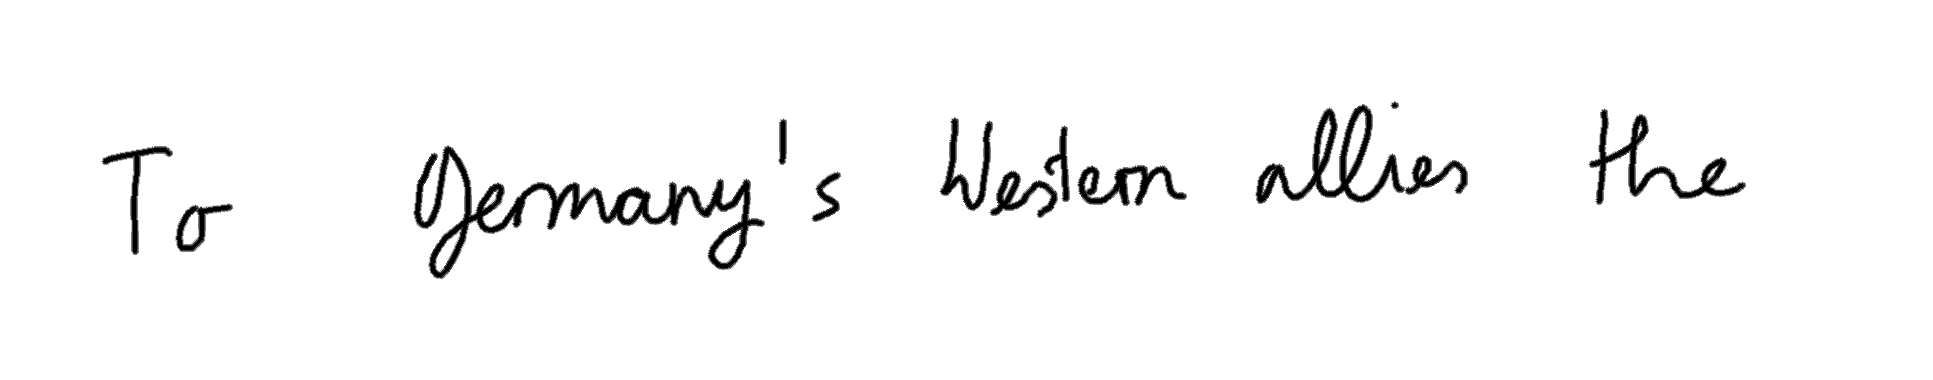 To Germany's Western allies the